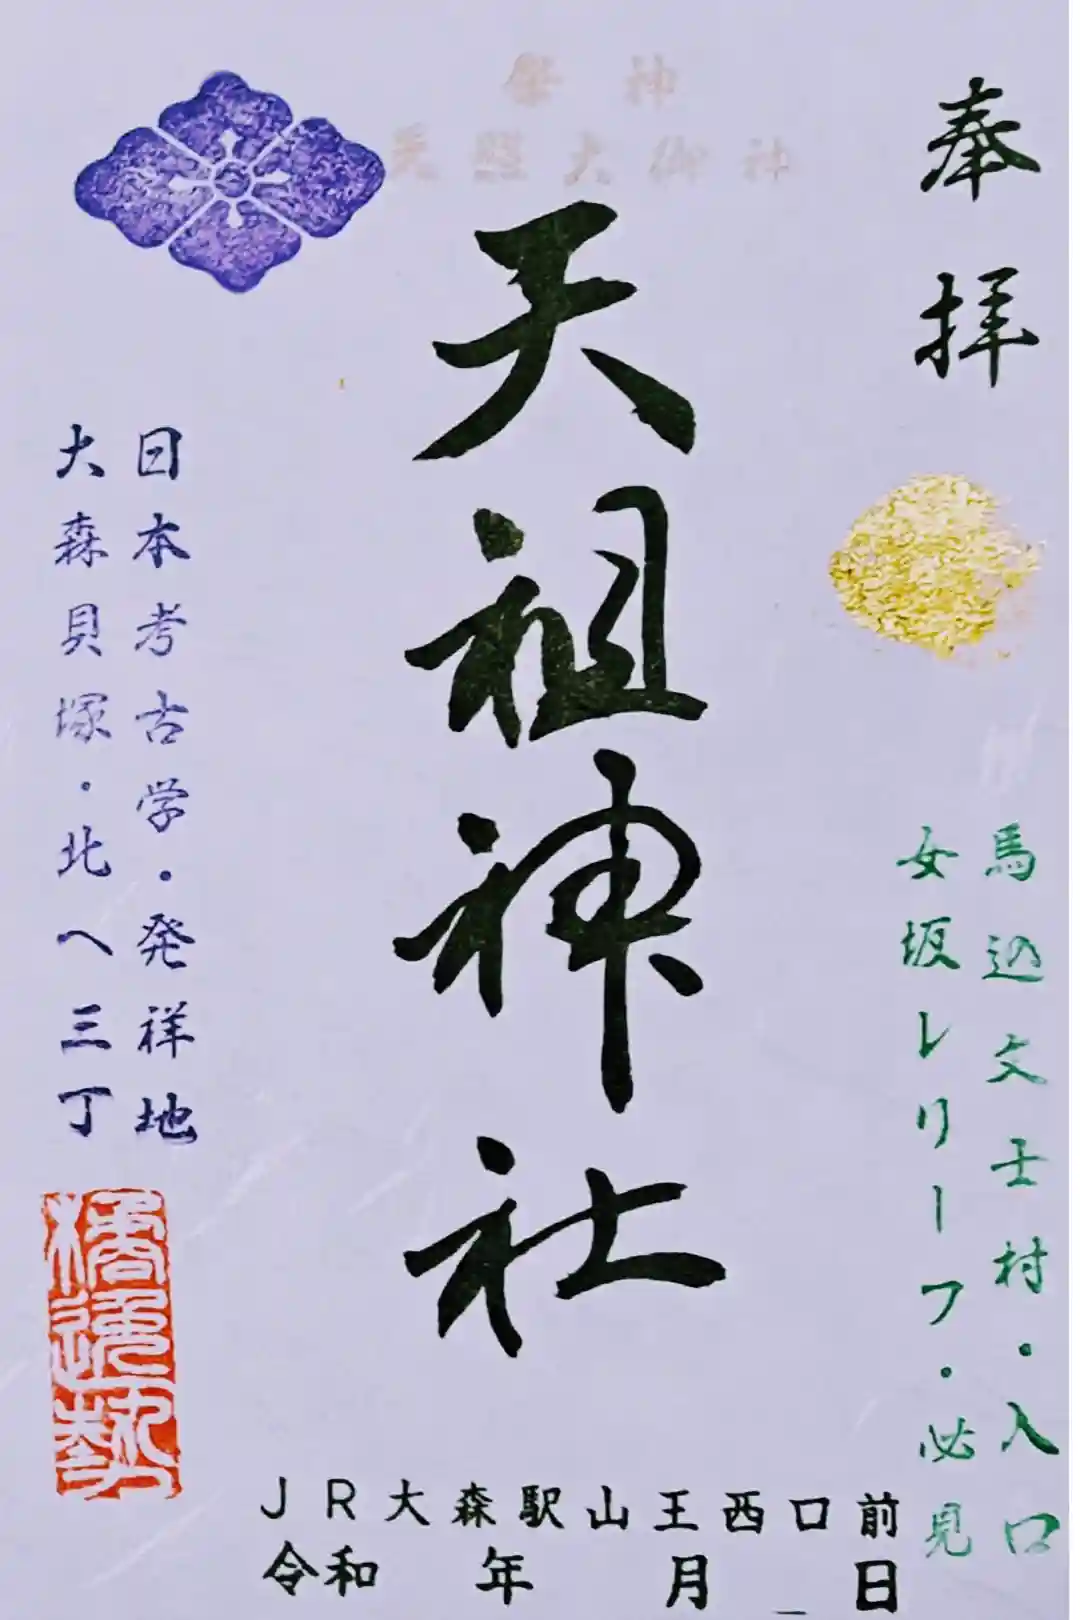 奉拝
馬込文士村・入口
女坂レリーフ・必見
神
天照大御神
天祖神社
日本考古学・発祥地
大森貝塚・北へ三丁
橘逸勢
JR大森駅山王西口前
令和 年 月 日